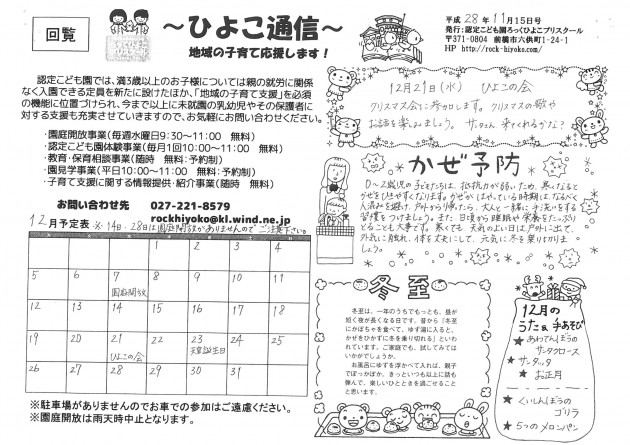 回覧
～ひよこ通信～
地域の子育て応援します！
平成28年11月15日号
発行：認定こども園ろっくひよこプリスクール
〒371-0804　前橋市六供町1-24-1
HP http://rock-hiyoko.com/
認定こども園では、満3歳以上のお子様については親の就労に関係
なく入園できる定員を新たに設けたほか、「地域の子育て支援」を必須
の機能に位置づけられ、今まで以上に未就園の乳幼児やその保護者に
対する支援も充実させていきますので、お気軽にお問い合わせください。
・園庭開放事業（毎週水曜日9:30～11:00　無料）
・認定こども園体験事業（毎月1回10:00～11:00　無料）
・教育・保育相談事業（随時　無料：予約制）
・園見学事業（平日10:00～11:00　無料：予約制）
・子育て支援に関する情報提供・紹介事業（随時　無料）
お問い合わせ先　027-221-8579
rockhiyoko@kl.wind.ne.jp
12月予定表　※14日・28日は園庭開放がありませんのでご注意下さい。
1 2 3 4
5 6 7 8 9 10 11
園庭開放
12 13 14 15 16 17 18
19 20 21 22 23 24 25
ひよこの会 天皇誕生日
26 27 28 29 30 31
※駐車場がありませんのでお車での参加はご遠慮ください。
※園庭開放は雨天時中止となります。
12月21日（水）　ひよこの会
クリスマス会に参加します。クリスマスの歌や
お話を楽しみましょう。サンタさん来てくれるかな？
かぜ予防
0～2歳児の子どもたちは、抵抗力が弱いため、寒くなると
かぜをひきやすくなります。かぜがはやっている時期には、なるべく
人混みを避け、戸外から帰ったら、大人と一緒に手洗いをする
習慣をつけましょう。また、日頃から睡眠や栄養をたっぷり
とることも大事です。寒くても、天気のよい日は戸外に出て、
外気に触れ、体を丈夫にして、元気に冬を乗りきりま
しょう。
冬至
冬至は、一年のうちでもっとも、昼が
短く夜が長くなる日です。昔から「冬至
にかぼちゃを食べて、ゆず湯に入ると、
かぜをひかずに冬を乗り切れる」といわ
れています。ご家庭でも、試してみては
いかがでしょうか。
お風呂にゆずを浮かべて入れば、親子
でぽっかぽか。きっといつも以上に話も
弾んで、楽しいひとときを過ごせること
と思います。
12月の
うた&手あそび
★あわてんぼうの
サンタクロース
★サンタッタ
★お正月
★くいしんぼうの
ゴリラ
★5つのメロンパン